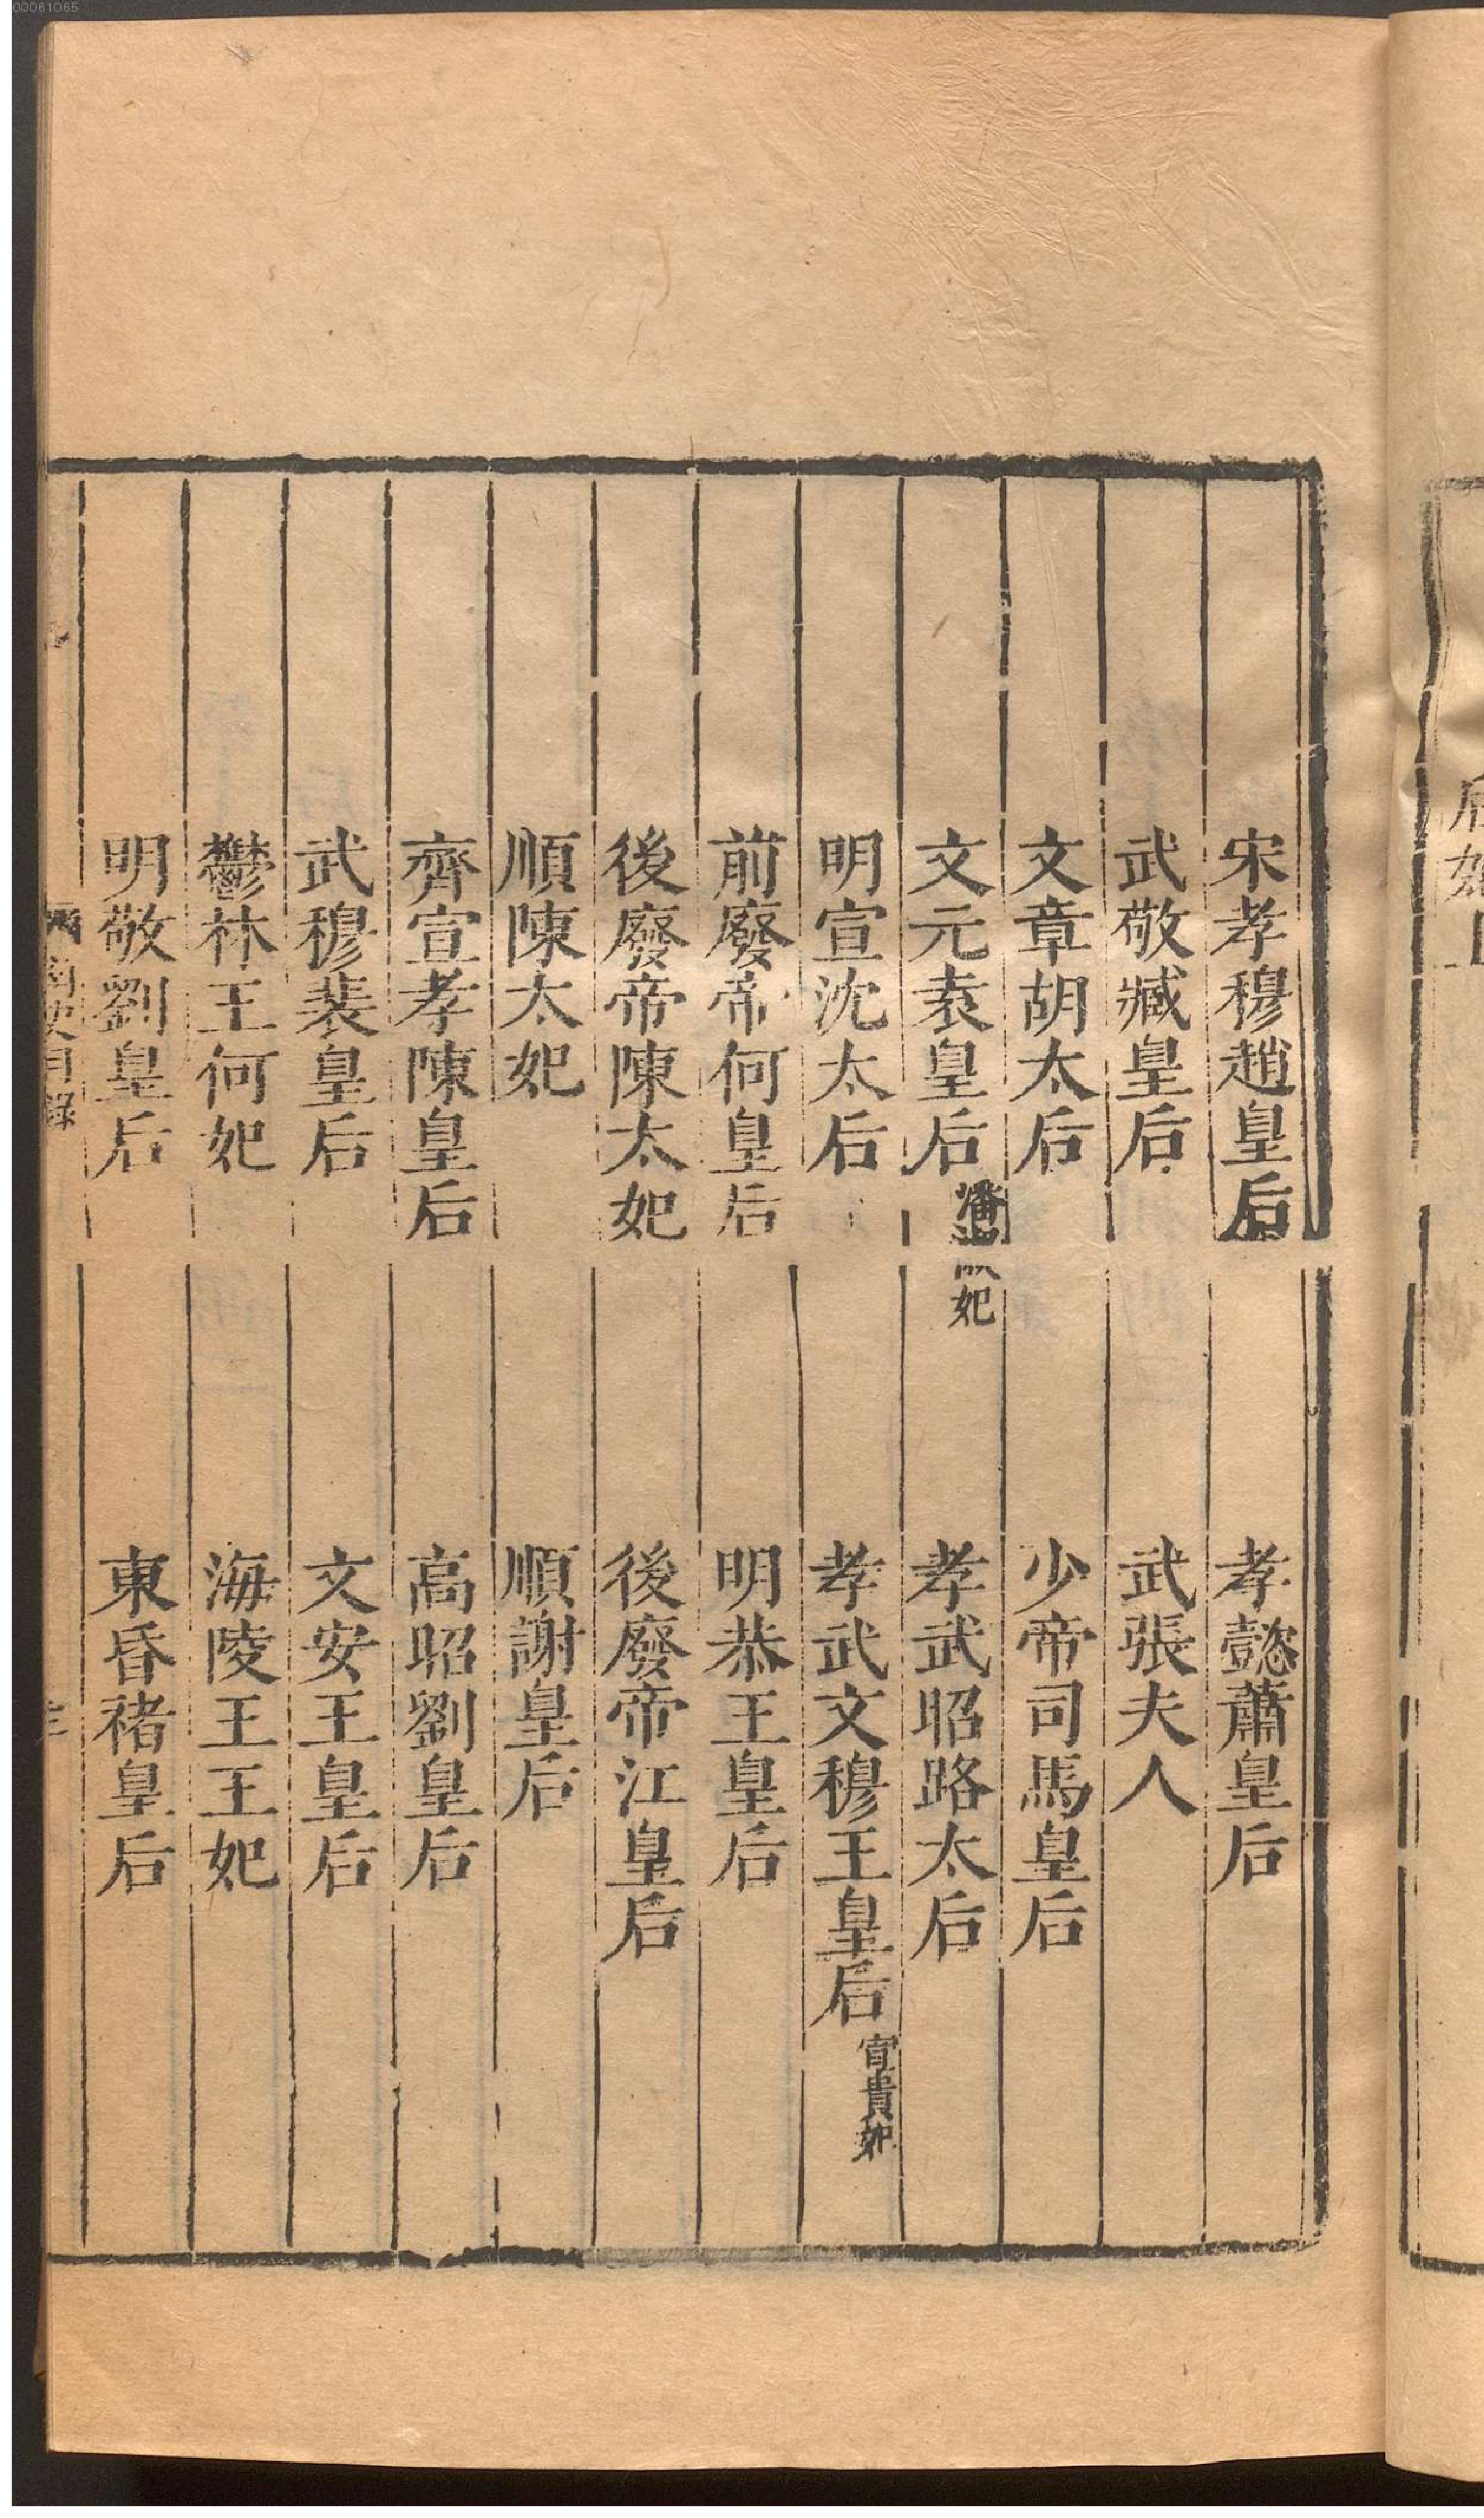 宋孝穆趙皇后　孝懿蕭皇后
武敬臧皇后　武張夫人
文章胡太后　少帝司馬皇后
文元袁皇后潘淑妃　孝武昭路太后
明宣沈太后　孝武文穆王皇后宣貴妃
前廢帝何皇后　明恭王皇后
後廢帝陳太妃　後廢帝江皇后
順陳太妃　順謝皇后
齊宣孝陳皇后　高昭劉皇后
武穆裴皇后　文安王皇后
鬱林王何妃　海陵王王妃
明敬劉皇后　東昏褚皇后
南史目錄
00061065